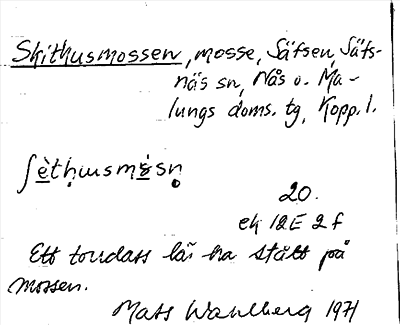 Skithusmossen, mosse, Säfsen, Säfs-
näs sn, Nås o. Ma-
lungs doms. tg, Kopp. l.
ʃèthɯsmɞ̀sn̥
20.
ek 12E 2f
Ett torrdass lär ha stått på
mossen.
Mats Wahlberg 1971